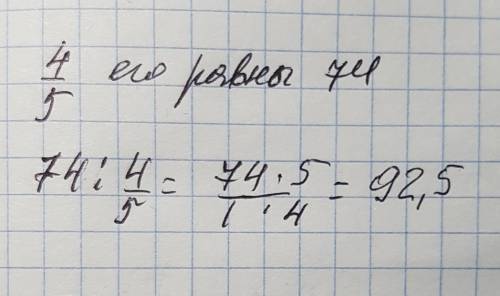 4/5 его равны 74
74 : 4/5 = (74 · 5)/(1 · 4) = 92,5